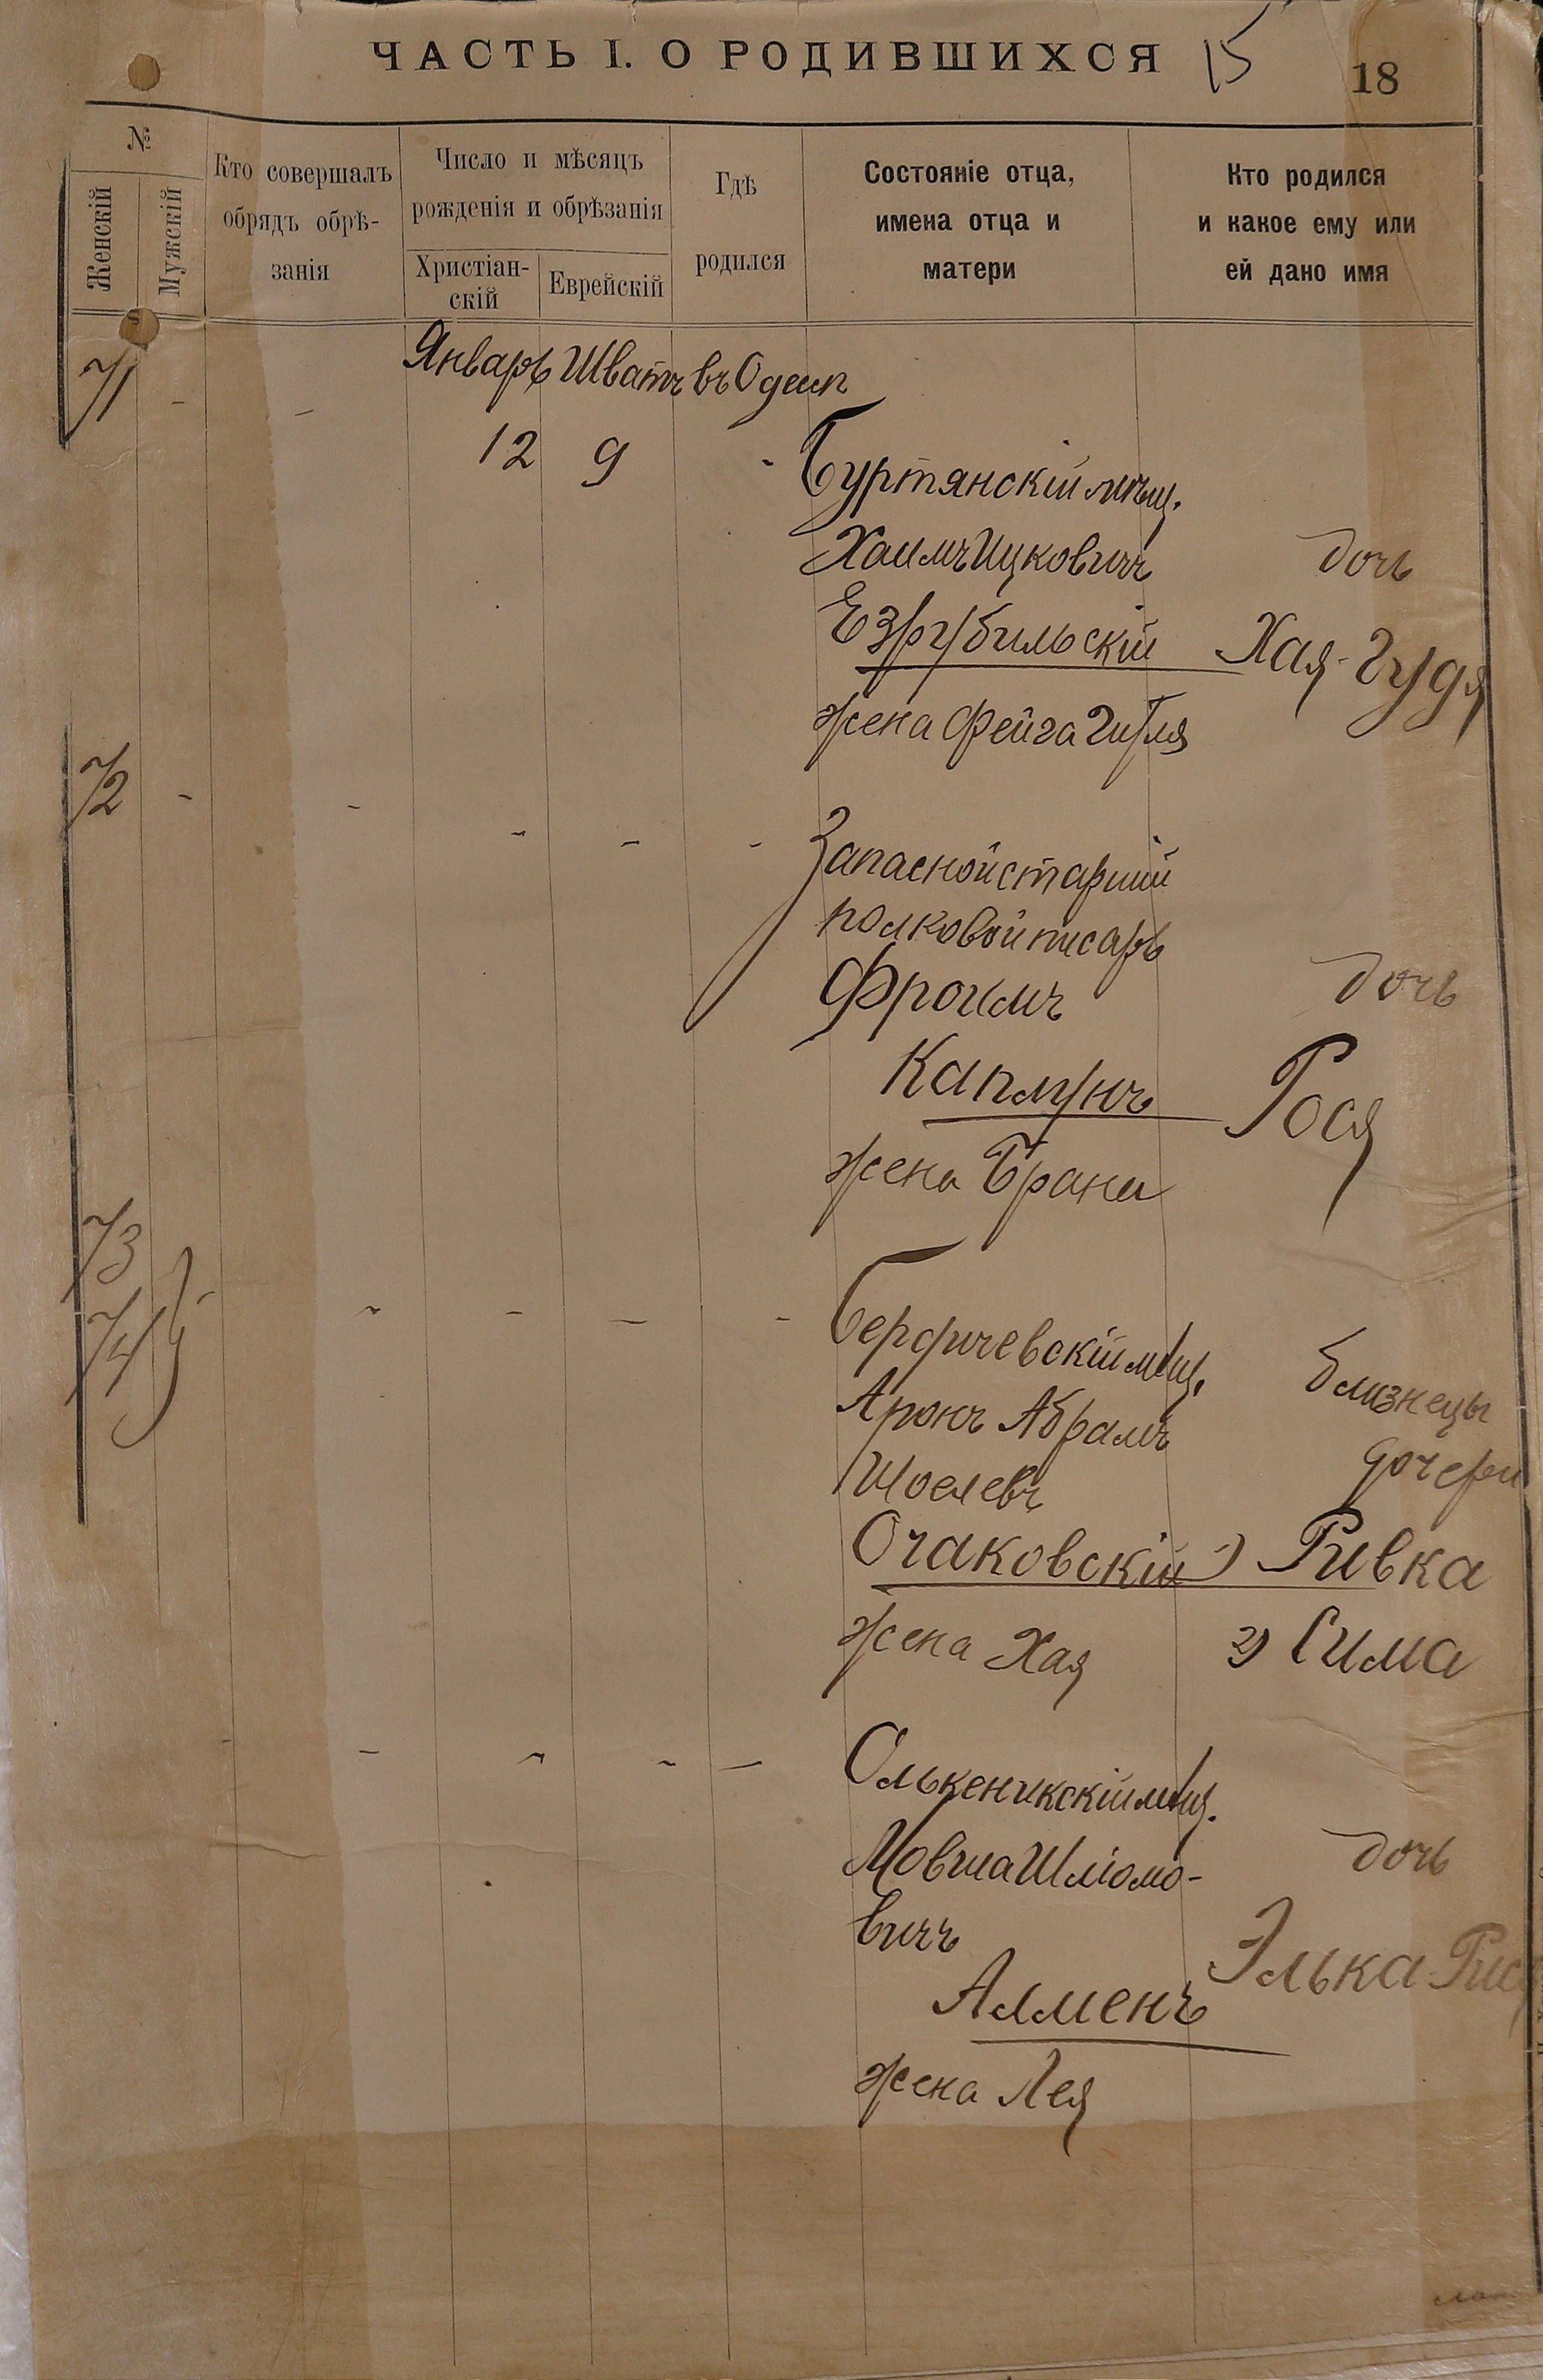 ЧАСТЬ I. О РОДИВШИХСЯ 15 18
№
Женскій
Мужскій
Кто совершалъ
обрядъ обрѣ-
занія
Число и мѣсяцъ
рожденія и обрѣзанія
Христіан-
скій
Еврейскій
Гдѣ
родился
Состояніе отца,
имена отца и
матери
Кто родился
и какое ему или
ей дано имя
71 - - Январь Шватъ въ Одессѣ
12 9 -
мѣщ.
Хаимъ Ицковичъ дочь
Хая-Гудя
жена Фейга Гитля
72 - - - - - Запасной старшій
полковой писарь
Фроимъ дочь
Каплунъ Рося
жена Брана
73
74 - - - - - Бердичевскій мѣщ. близнецы
Аронъ Абрамъ дочери
Шоелевъ
Очаковскій 1) Ривка
жена Хая 2) Сима
- - - - - Олькеникскій мѣщ.
Мовша Шліомо- дочь
вичъ
Элька
Алменъ
жена Лея